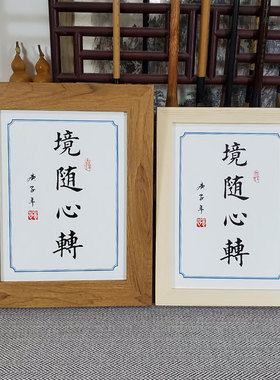 境随心轉
庚子年
境随心轉
庚子年